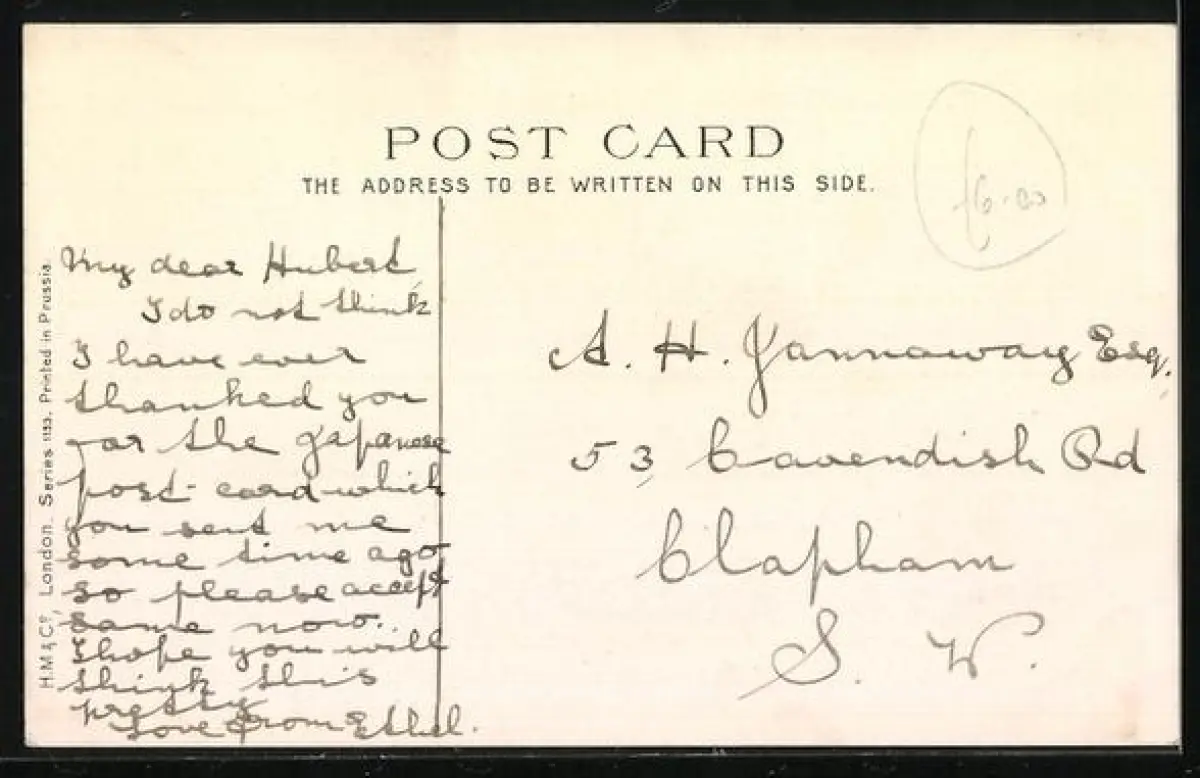 POST CARD
THE ADDRESS TO BE WRITTEN ON THIS SIDE.
£6.00
My dear Hubert,
I do not think
I have ever
thanked you
for the Japanese
post-card which
you sent me
some time ago
so please accept
same now.
I hope you will
think this
pretty
Love from Ethel.
A. H. Jannaway Esq.
53 Cavendish Rd
Clapham
S. W.
H.M & Co., London. Series 1133. Printed in Prussia.